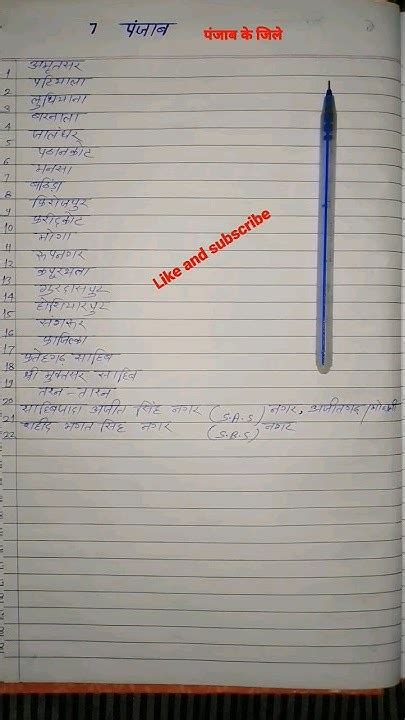 7 पंजाब पंजाब के जिले
1 अमृतसर
2 पटियाला
3 लुधियाना
4 बरनाला
5 जालंधर
पठानकोट
6 मनसा
7 बठिंडा
8 फ़िरोजपुर
9 फ़रीदकोट
10 मोगा
11 रूपनगर
12 कपूरथला
13 गुरदासपुर
14 होशियारपुर
15 संगरूर
16 फ़ाजिल्का
17 फतेहगढ़ साहिब
18 श्री मुक्तसर साहिब
19 तरन-तारन
20 साहिबजादा अजीत सिंह नगर (S.A.S) नगर, अजीतगढ़
21 शहीद भगत सिंह नगर (S.B.S) नगर
22
Like and subscribe